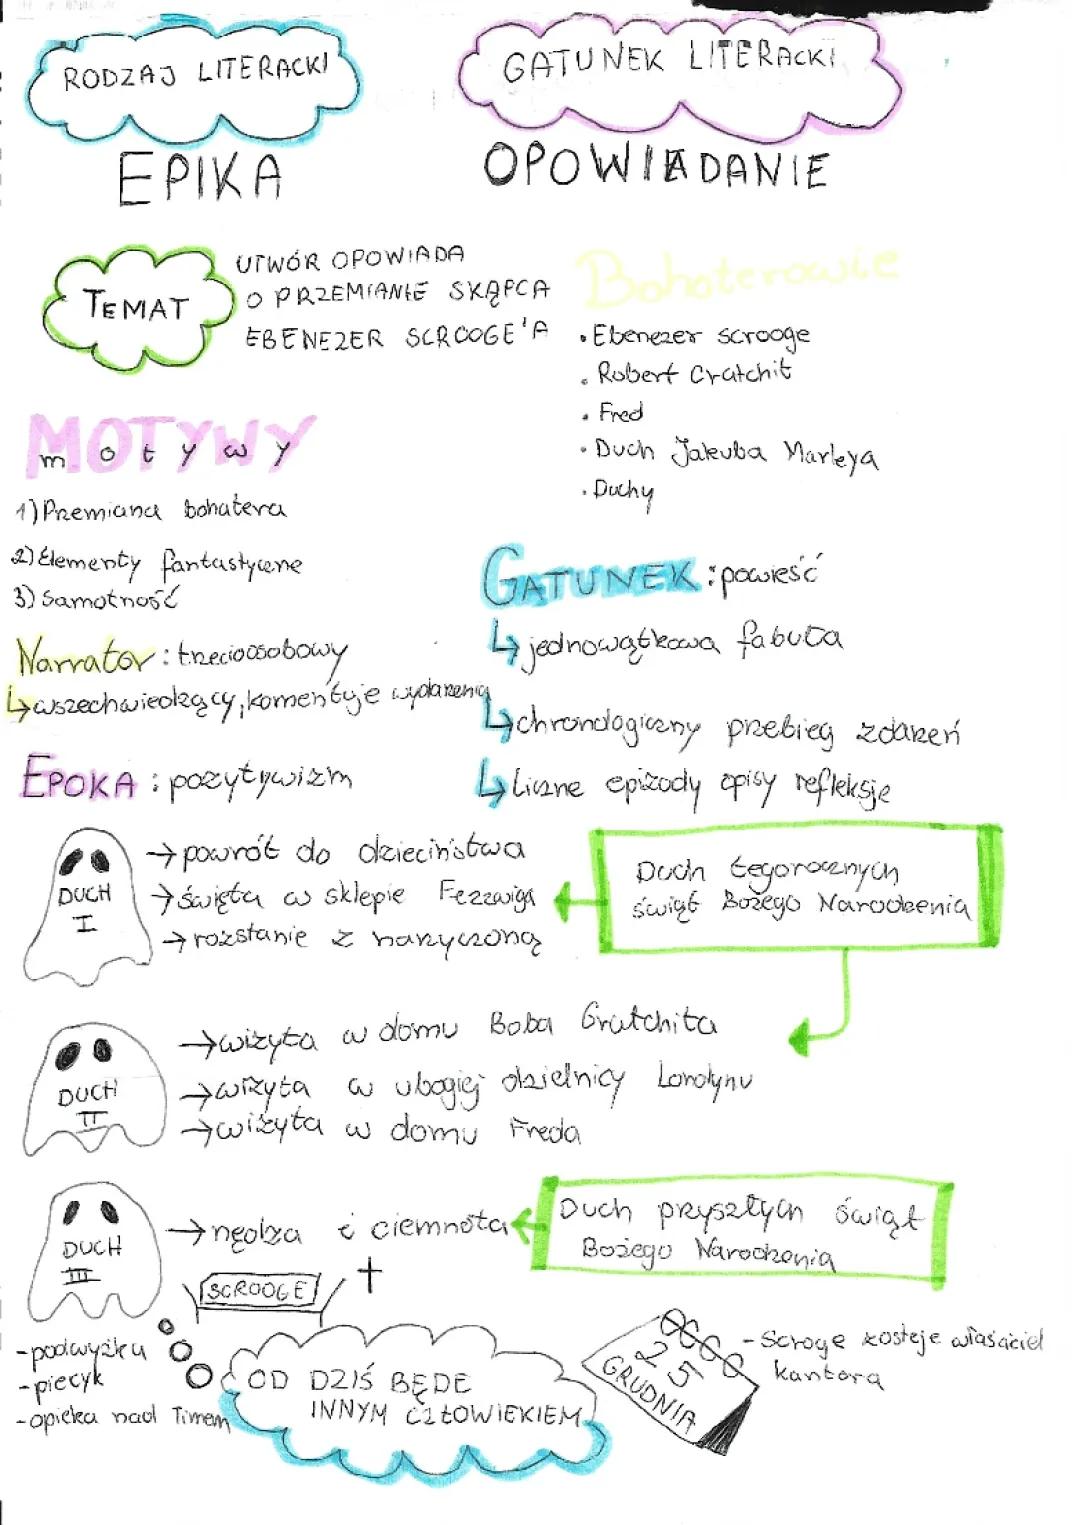 RODZAJ LITERACKI
EPIKA
GATUNEK LITERACKI
OPOWIADANIE
TEMAT
UTWÓR OPOWIADA
O PRZEMIANIE SKĄPCA
EBENEZER SCROOGE'A
Bohaterowie
• Ebenezer scrooge
• Robert Cratchit
• Fred
• Duch Jakuba Marleya
• Duchy
MOTYWY
motywy
1) Przemiana bohatera
2) Elementy fantastyczne
3) Samotność
Narrator: trzecioosobowy
↳ wszechwiedzący, komentuje wydarzenia
EPOKA: pozytywizm
GATUNEK: powieść
↳ jednowątkowa fabuła
↳ chronologiczny przebieg zdarzeń
↳ Liczne epizody opisy refleksje
DUCH
I
→ powrót do dzieciństwa
→ święta w sklepie Fezzwiga
→ rozstanie z narzyczoną
Duch tegorocznych
świąt Bożego Narodzenia
DUCH
II
→ wizyta w domu Boba Gratchita
→ wizyta w ubogiej dzielnicy Londynu
→ wizyta w domu Freda
DUCH
III
→ nędza i ciemnota
Duch przyszłych świąt
Bożego Narodzenia
SCROOGE
- podwyżka
- piecyk
- opieka nad Timem
OD DZIŚ BĘDE
INNYM CZŁOWIEKIEM
25
GRUDNIA
- Scroge zosteje właściciel
kantora